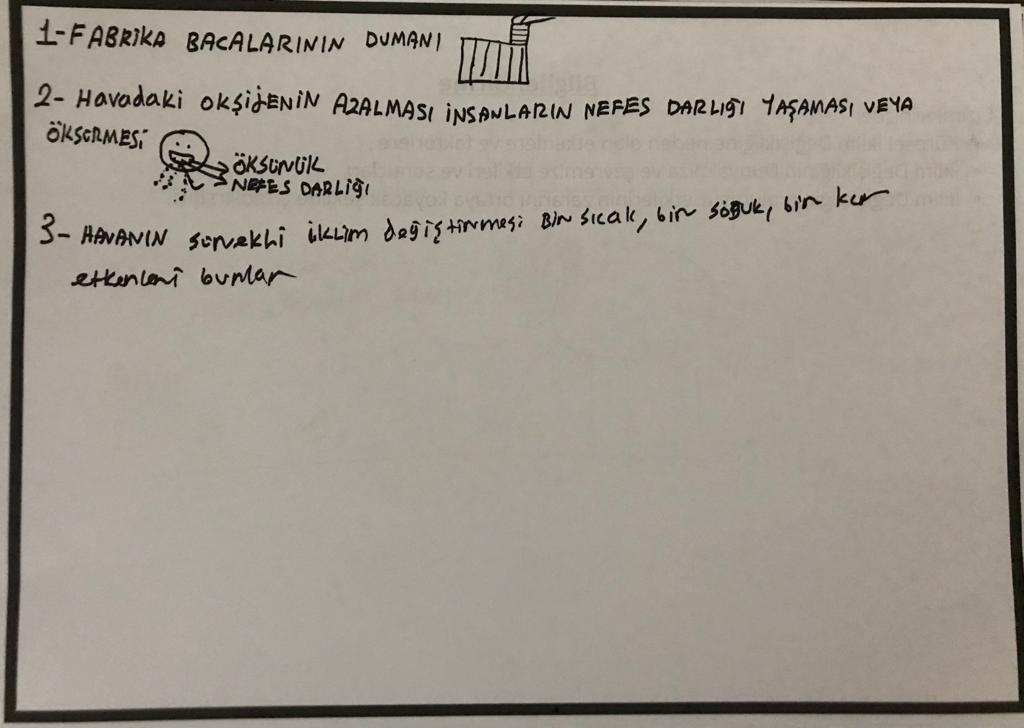 1-FABRİKA BACALARININ DUMANI
2- Havadaki OKSİJENİN AZALMASI İNSANLARIN NEFES DARLIĞI YAŞAMASI VEYA
ÖKSÜRMESİ
ÖKSÜRÜK
NEFES DARLIĞI
3- HAVANIN sürekli iklim değiştirmesi Bir sıcak, bir soğuk, bir kar
etkenleri bunlar